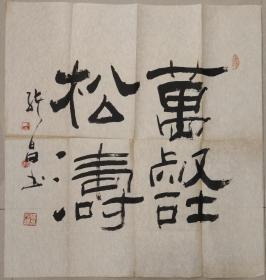 萬壑
松濤
張昌書